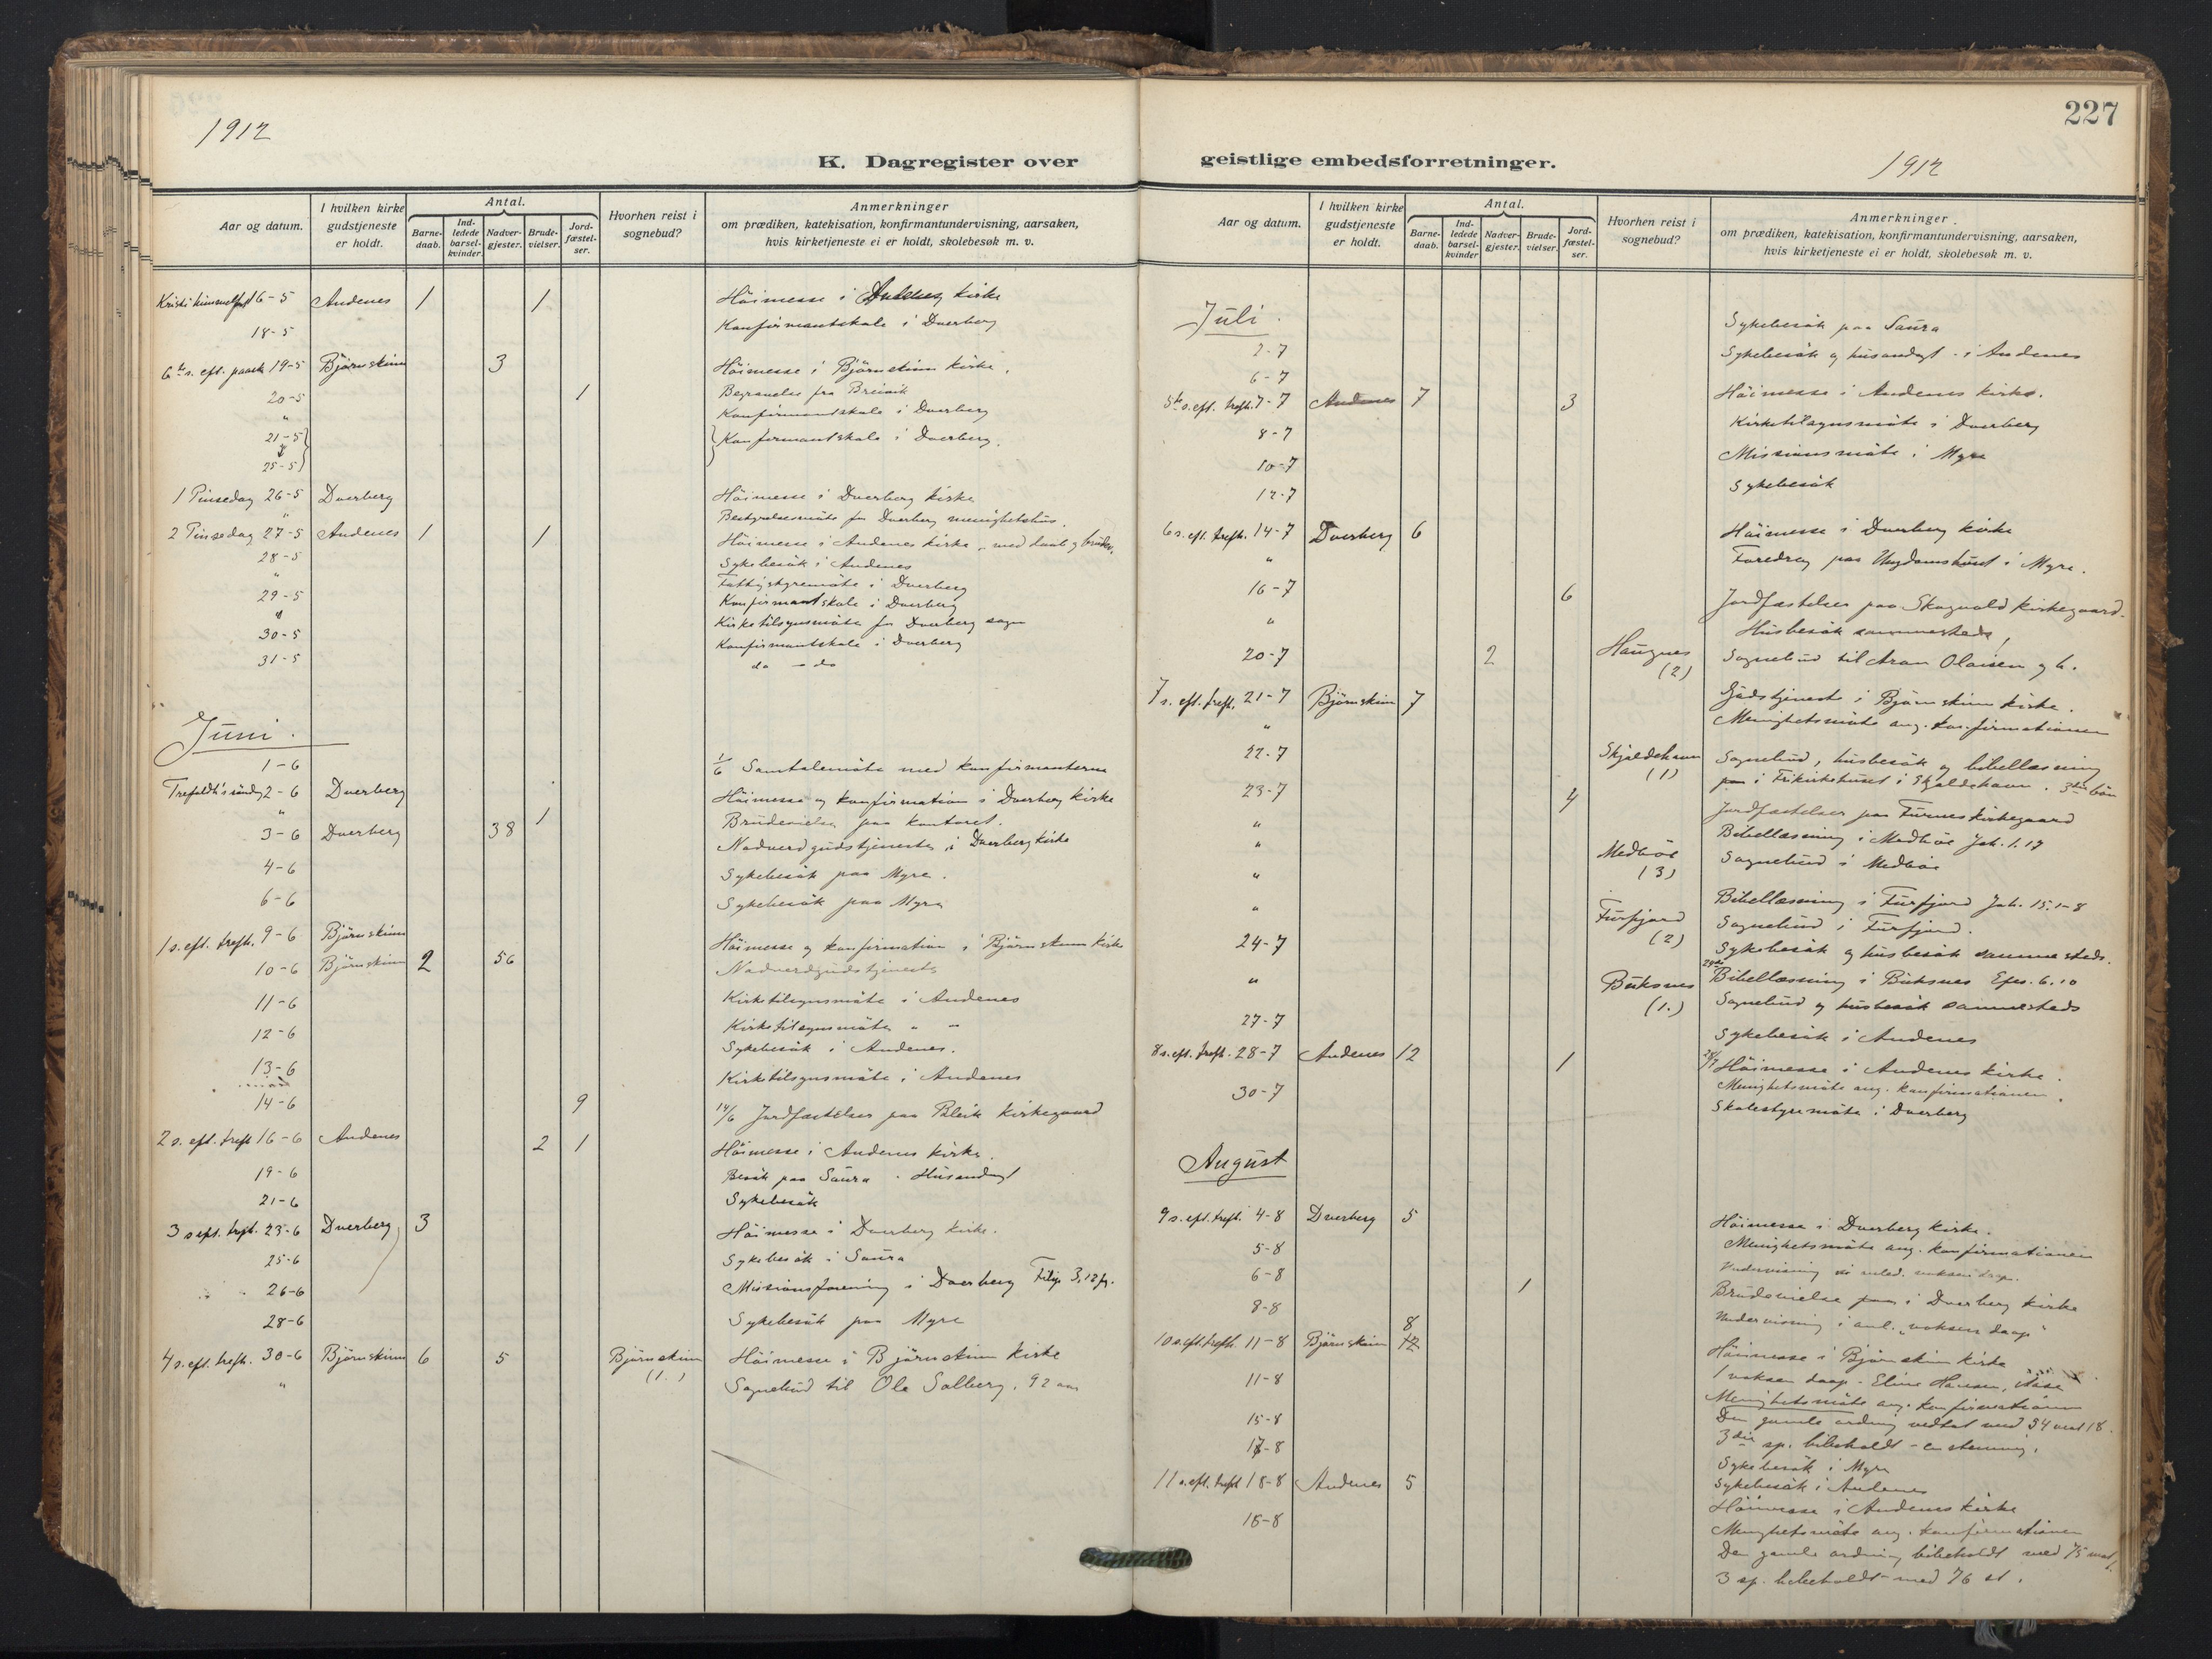 1912
K. Dagregister over
Aar og datum. I hvilken kirke gudstjeneste er holdt. Antal. Barne-daab. Ind-ledede barsel-kvinder. Nadver-gjester. Brude-vielser. Jord-fæstel-ser. Hvorhen reist i sognebud? Anmerkninger
om prædiken, katekisation, konfirmantundervisning, aarsaken,
hvis kirketjeneste ei er holdt, skolebesøk m. v.
Kristi himmelfart 16-5 Andenes 1 1 Höimesse i Andenes kirke
18-5 Konfirmantskole i Dverberg
6te s. eft. paask 19-5 Björnskinn 3 Höimesse i Björnskinn kirke.
20-5 1 Begravelse fra Breivik
" Konfirmantskole i Dverberg
21-5 Konfirmantskole i Dverberg.
25-5
1 Pinsedag 26-5 Dverberg Höimesse i Dverberg kirke
" Bestyrelsesmöte for Dverberg menighetshus.
2 Pinsedag 27-5 Andenes 1 1 Höimesse i Andenes kirke med daab og
28-5 Sykebesök i Andenes
" Fattigstyremöte i Dverberg
29-5 Konfirmantskole i Dverberg
" Kirketilsynsmöte for Dverberg sogn
30-5 Konfirmantskole i Dverberg
31-5 do - do
Juni.
1-6 1/6 Samtalemöte med konfirmanterne
Trefoldh's söndg 2-6 Dverberg Höimesse og konfirmation i Dverberg kirke
" 1 Brudevielse paa kontoret.
3-6 Dverberg 38 Nadverdgudstjeneste i Dverberg kirke
4-6 Sykebesök paa Myre.
6-6 Sykebesök paa Myre
1 s. eft. trefh. 9-6 Björnskinn Höimesse og konfirmation i Björnskinn kirke
10-6 Björnskinn 2 56 Nadverdgudstjeneste
11-6 Kirketilsynsmöte i Andenes
12-6 Kirketilsynsmöte " "
Sykebesök i Andenes.
13-6 Kirketilsynsmöte i Andenes
14-6 9 14/6 Jordfæstelser paa Bleik kirkegaard
2 s. eft. trefh 16-6 Andenes 2 1 Höimesse i Andenes kirke.
19-6 Besök paa Saura. Husandagt
21-6 Sykebesök
3 s eft. trefh. 23-6 Dverberg 3 Höimesse i Dverberg kirke.
25-6 Sykebesök i Saura
26-6 Missionsforening i Dverberg Filip 3,12 fg.
28-6 Sykebesök paa Myre
4 s. eft. trefh. 30-6 Björnskinn 6 5 Björnskinn (1.) Höimesse i Björnskinn kirke
" Sognebud til Ole Solberg, 92 aar
227
geistlige embedsforretninger.
1912
Aar og datum. I hvilken kirke gudstjeneste er holdt. Antal. Barne-daab. Ind-ledede barsel-kvinder Nadver-gjester. Brude-vielser. Jord-fæstel-ser. Hvorhen reist i sognebud? Anmerkninger
om prædiken, katekisation, konfirmantundervisning, aarsaken,
hvis kirketjeneste ei er holdt, skolebesøk m. v.
Juli.
2-7 Sykebesök paa Saura
6-7 Sykebesök og husandagt i Andenes
5te s. eft. trefh. 7-7 Andenes 7 3 Höimesse i Andenes kirke.
8-7 Kirketilsynsmöte i Dverberg
10-7 Missionsmöte i Myre
12-7 Sykebesök
6 s. eft. trefh. 14-7 Dverberg 6 Höimesse i Dverberg kirke
" Foredrag paa Ungdomshuset i Myre.
16-7 6 Jordfæstelser paa Skogvold kirkegaard.
" Husbesök sammesteds
20-7 2 Haugnes (2) Sognebud til Aron Olaisen og h.
7 s. eft. trefh. 21-7 Björnskinn 7 Gudstjeneste i Björnskinn kirke.
" Menighetsmöte ang. konfirmationen
22-7 Skjoldehavn (1) Sognebud, husbesök og bibellæsning
i Frikirkehuset i Skjoldehavn. 3die bön
23-7 4 Jordfæstelser paa Furnes kirkegaard
" Bibellæsning i Medböe Joh. 1.17
" Medböe (3) Sognebud i Medböe
" Bibellæsning i Furfjord Joh. 15.1-8
" Furfjord (2) Sognebud i Furfjord.
24-7 Sykebesök og husbesök sammesteds.
" Buksnes (1.) Bibellæsning i Buksnes Efes. 6.10
Sognebud og husbesök sammesteds
27-7 Sykebesök i Andenes
8 s. eft. trefh. 28-7 Andenes 12 1 28/7 Höimesse i Andenes kirke.
Menighetsmöte ang. konfirmationen.
30-7 Skolestyremöte i Dverberg
August
9 s. eft. trefh. 4-8 Dverberg 5 Höimesse i Dverberg kirke.
Menighetsmöte ang. konfirmationen
5-8 Undervisning voksen daap.
6-8 1 Brudevielse i Dverberg kirke
8-8 Undervisning i anl. "voksen daap"
10 s. eft. trefh. 11-8 Björnskinn 8 12 Höimesse i Björnskinn kirke
1 voksen daap - Eline Hansen, Aase
11-8 Menighetsmöte ang. konfirmationen
Den gamle ordning vedtat med 34 mot 18.
3die sp. bibeholdt - en stemning.
15-8 Sykebesök i Myre
17-8 Sykebesök i Andenes
11 s. eft. trefh 18-8 Andenes 5 Höimesse i Andenes kirke
18-8 Menighetsmöte ang. konfirmationen
Den gamle ordning bibeholdt med 75 mot
3 sp. bibeholdt med 76 st.